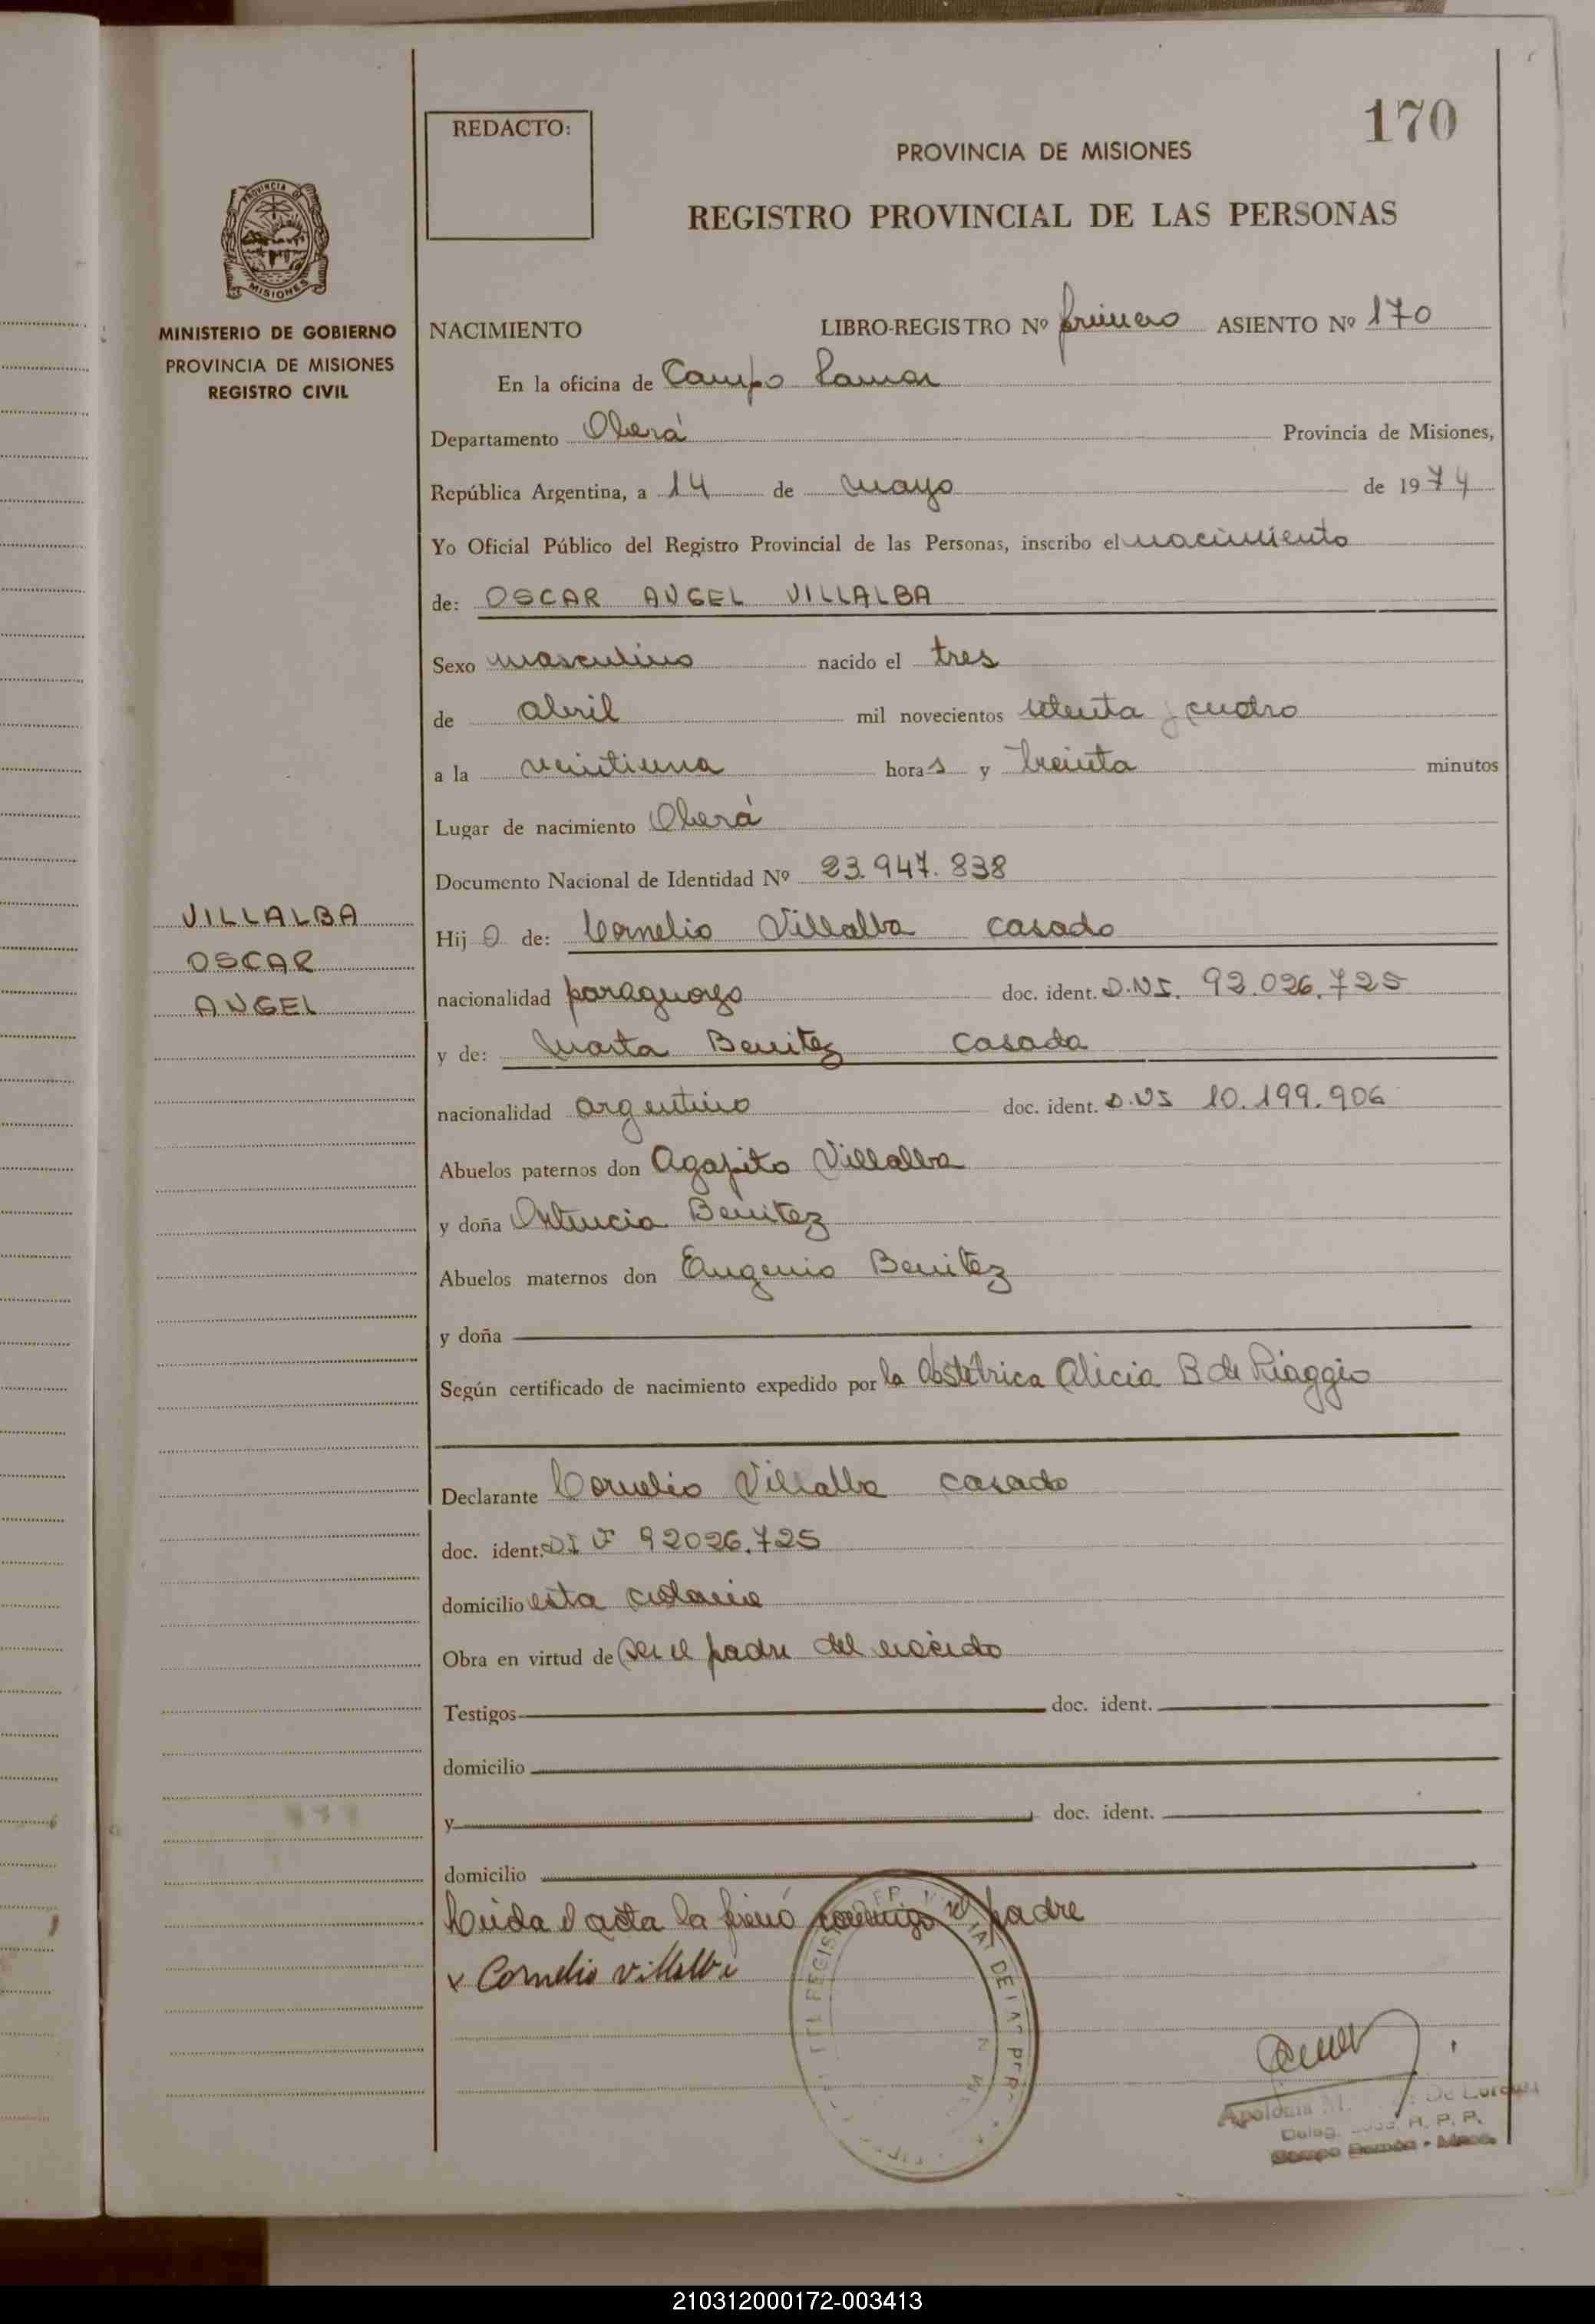 170
REDACTO:
PROVINCIA DE MISIONES
REGISTRO PROVINCIAL DE LAS PERSONAS
PROVINCIA DE
MISIONES
MINISTERIO DE GOBIERNO
PROVINCIA DE MISIONES
REGISTRO CIVIL
NACIMIENTO LIBRO-REGISTRO Nº primero ASIENTO Nº 170
En la oficina de Campo Ramon
Departamento Oberá Provincia de Misiones,
República Argentina, a 14 de mayo de 1974
Yo Oficial Público del Registro Provincial de las Personas, inscribo el nacimiento
de: OSCAR ANGEL VILLALBA
Sexo masculino nacido el tres
de abril mil novecientos setenta y cuatro
a la veintiuna horas y treinta minutos
Lugar de nacimiento Oberá
Documento Nacional de Identidad Nº 23.947.838
VILLALBA
OSCAR
ANGEL
Hijo de: Cornelio Villalba casado
nacionalidad paraguayo doc. ident. D.N.I. 92.026.725
y de: Marta Benitez casada
nacionalidad argentino doc. ident. D.NI 10.199.906
Abuelos paternos don Agapito Villalba
y doña Benitez
Abuelos maternos don Eugenio Benitez
y doña
Según certificado de nacimiento expedido por la Obstetrica Alicia B de Riaggio
Declarante Cornelio Villalba casado
doc. ident. 92026.725
domicilio esta colonia
Obra en virtud de ser el padre del nacido
Testigos doc. ident.
domicilio
y doc. ident.
domicilio
Leida el acta la firmó conmigo el padre
x Cornelio Villalba
Apolonia M. De
Deleg. R. P. P.
Campo Ramón - Mnes.
210312000172-003413